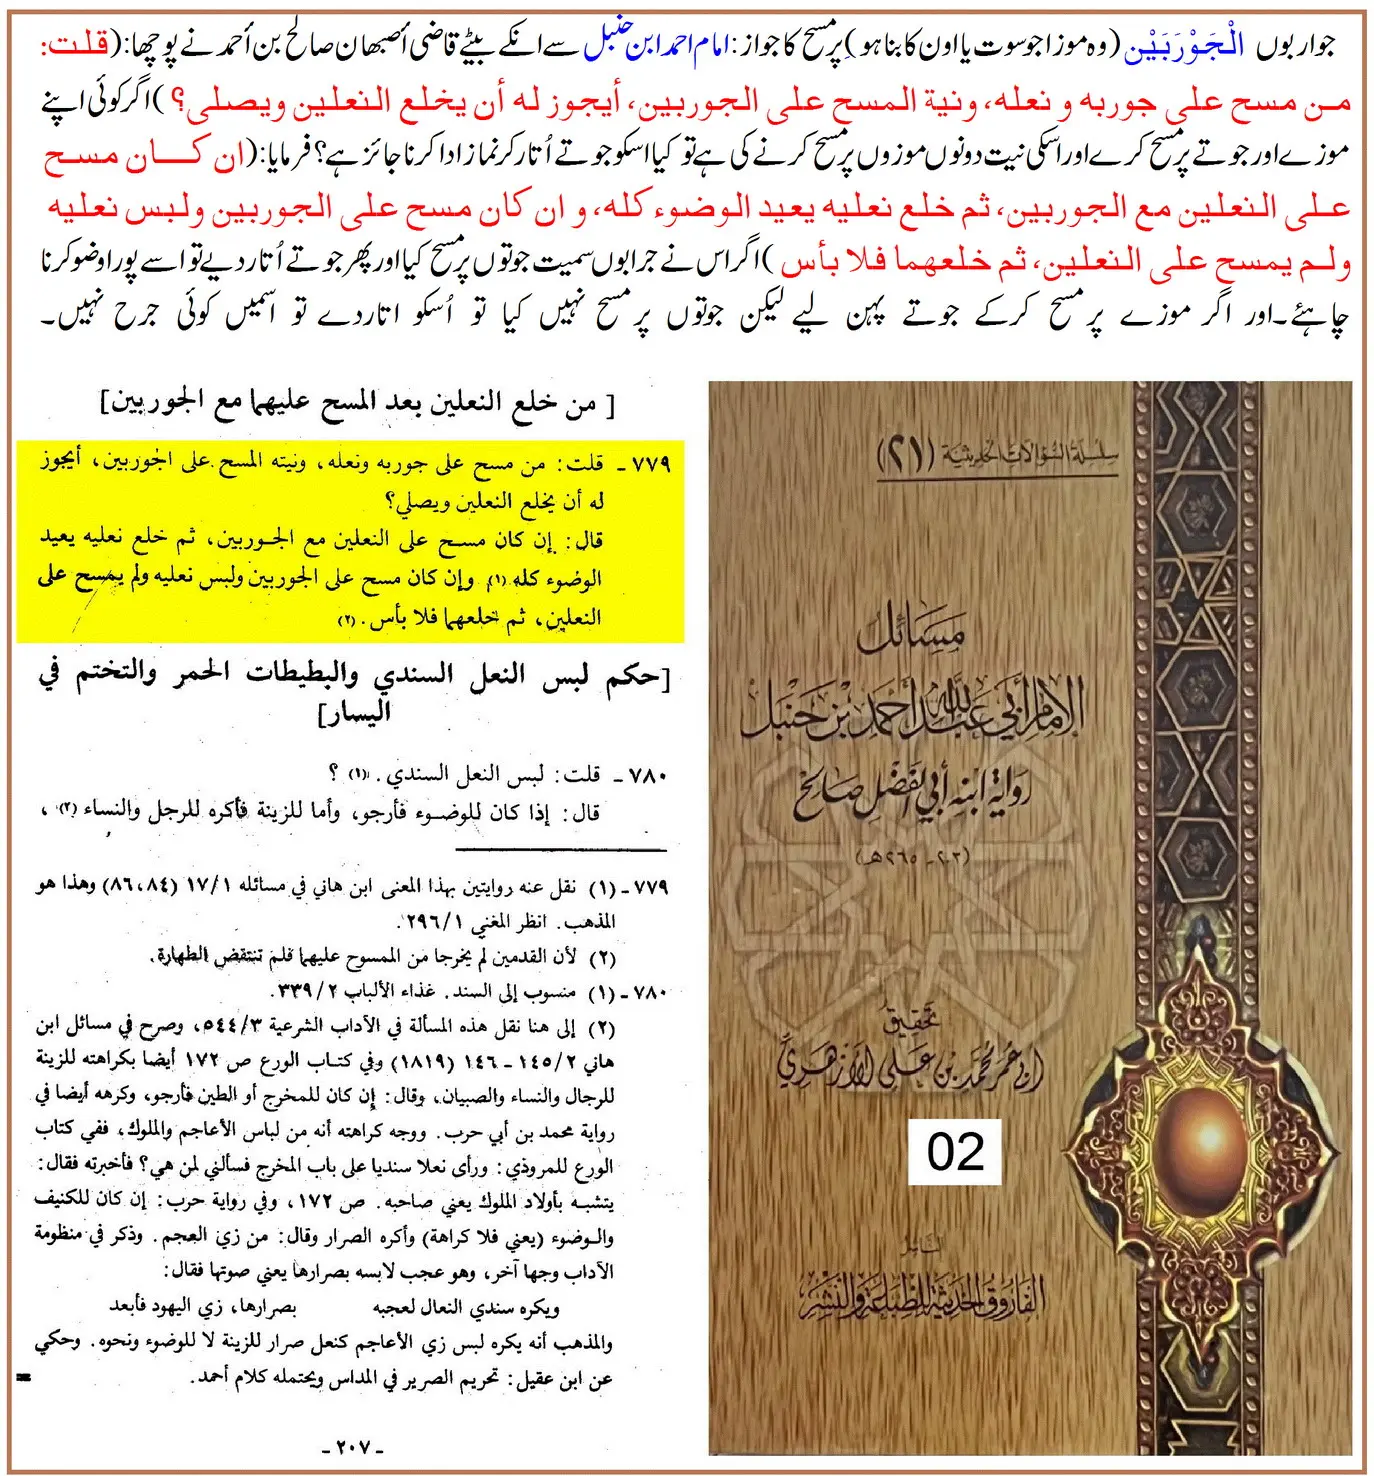 جواربوں الْجَوْرَبَيْن (وہ موزا جو سوت یا اون کا بنا ہو) پر مسح کا جواز: امام احمد ابن حنبل سے انکے بیٹے قاضی أصبهان صالح بن أحمد نے پوچھا: (قلت:
من مسح على جوربه و نعله، ونية المسح على الجوربين، أيجوز له أن يخلع النعلين ويصلى؟) اگر کوئی اپنے
موزے اور جوتے پر مسح کرے اور اسکی نیت دونوں موزوں پر مسح کرنے کی ہے تو کیا اسکو جوتے اُتار کر نماز ادا کرنا جائز ہے؟ فرمایا: (ان كان مسح
على النعلين مع الجوربين، ثم خلع نعليه يعيد الوضوء كله، و ان كان مسح على الجوربين ولبس نعليه
ولم يمسح على النعلين، ثم خلعهما فلا بأس) اگر اس نے جرابوں سمیت جوتوں پر مسح کیا اور پھر جوتے اُتار دیے تو اسے پورا وضو کرنا
چاہئے۔ اور اگر موزے پر مسح کرکے جوتے پہن لیے لیکن جوتوں پر مسح نہیں کیا تو اُسکو اتار دے تو اسمیں کوئی حرج نہیں۔
[ من خلع النعلين بعد المسح عليهما مع الجوربين]
٧٧٩ - قلت: من مسح على جوربه ونعله، ونيته المسح على الجوربين، أيجوز
له أن يخلع النعلين ويصلي؟
قال: إن كان مسح على النعلين مع الجوربين، ثم خلع نعليه يعيد
الوضوء كله (١). وإن كان مسح على الجوربين ولبس نعليه ولم يمسح على
النعلين، ثم خلعهما فلا بأس. (٢)
[حكم لبس النعل السندي والبطيطات الحمر والتختم في
اليسار]
٧٨٠ - قلت: لبس النعل السندي. (١) ؟
قال: إذا كان للوضوء فأرجو، وأما للزينة فأكره للرجل والنساء (٢) ،
٧٧٩ - (١) نقل عنه روايتين بهذا المعنى ابن هاني في مسائله ١٧/١ (٨٦،٨٤) وهذا هو
المذهب. انظر المغني ٢٩٦/١.
(٢) لأن القدمين لم يخرجا من الممسوح عليهما فلم تنتقض الطهارة.
٧٨٠ - (١) منسوب إلى السند. غذاء الألباب ٣٣٩/٢.
(٢) إلى هنا نقل هذه المسألة في الآداب الشرعية ٥٤٤/٣، وصرح في مسائل ابن
هاني ١٤٥/٢ - ١٤٦ (١٨١٩) وفي كتاب الورع ص ١٧٢ أيضا بكراهته للزينة
للرجال والنساء والصبيان، وقال: إن كان للمخرج أو الطين فأرجو، وكرهه أيضا في
رواية محمد بن أبي حرب. ووجه كراهته أنه من لباس الأعاجم والملوك، ففي كتاب
الورع للمروذي: ورأى نعلا سنديا على باب المخرج فسألني لمن هي؟ فأخبرته فقال:
يتشبه بأولاد الملوك يعني صاحبه. ص ١٧٢، وفي رواية حرب: إن كان للكنيف
والوضوء (يعني فلا كراهة) وأكره الصرار وقال: من زي العجم. وذكر في منظومة
الآداب وجها آخر، وهو عجب لابسه بصرارها يعني صوتها فقال:
ويكره سندي النعال لعجبه بصرارها، زي اليهود فأبعد
والمذهب أنه يكره لبس زي الأعاجم كنعل صرار للزينة لا للوضوء ونحوه. وحكي
عن ابن عقيل: تحريم الصرير في المداس ويحتمله كلام أحمد.
- ٢٠٧ -
سلسلة السؤالات الحديثية (٢١)
مسائل
الإمام أبي عبد الله أحمد بن حنبل
رواية ابنه أبي الفضل صالح
(٢٠٣ - ٢٦٥هـ)
تحقيق
أبي عمر محمد بن علي الأزهري
02
الناشر
الفاروق الحديثة للطباعة والنشر